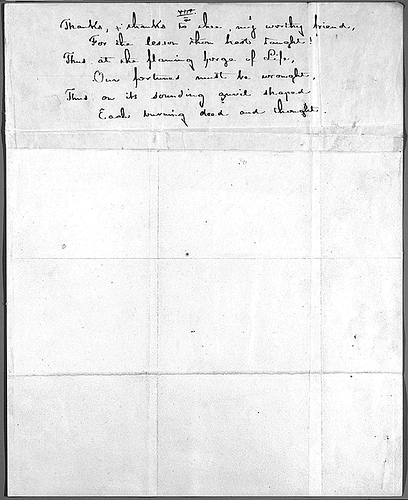 Thanks, thanks to thee, my worthy friend,
For the lesson thou hast taught!
Thus at the flaming forge of Life,
Our fortunes must be wrought,
Thus on its sounding anvil shaped
Each burning deed and thought.